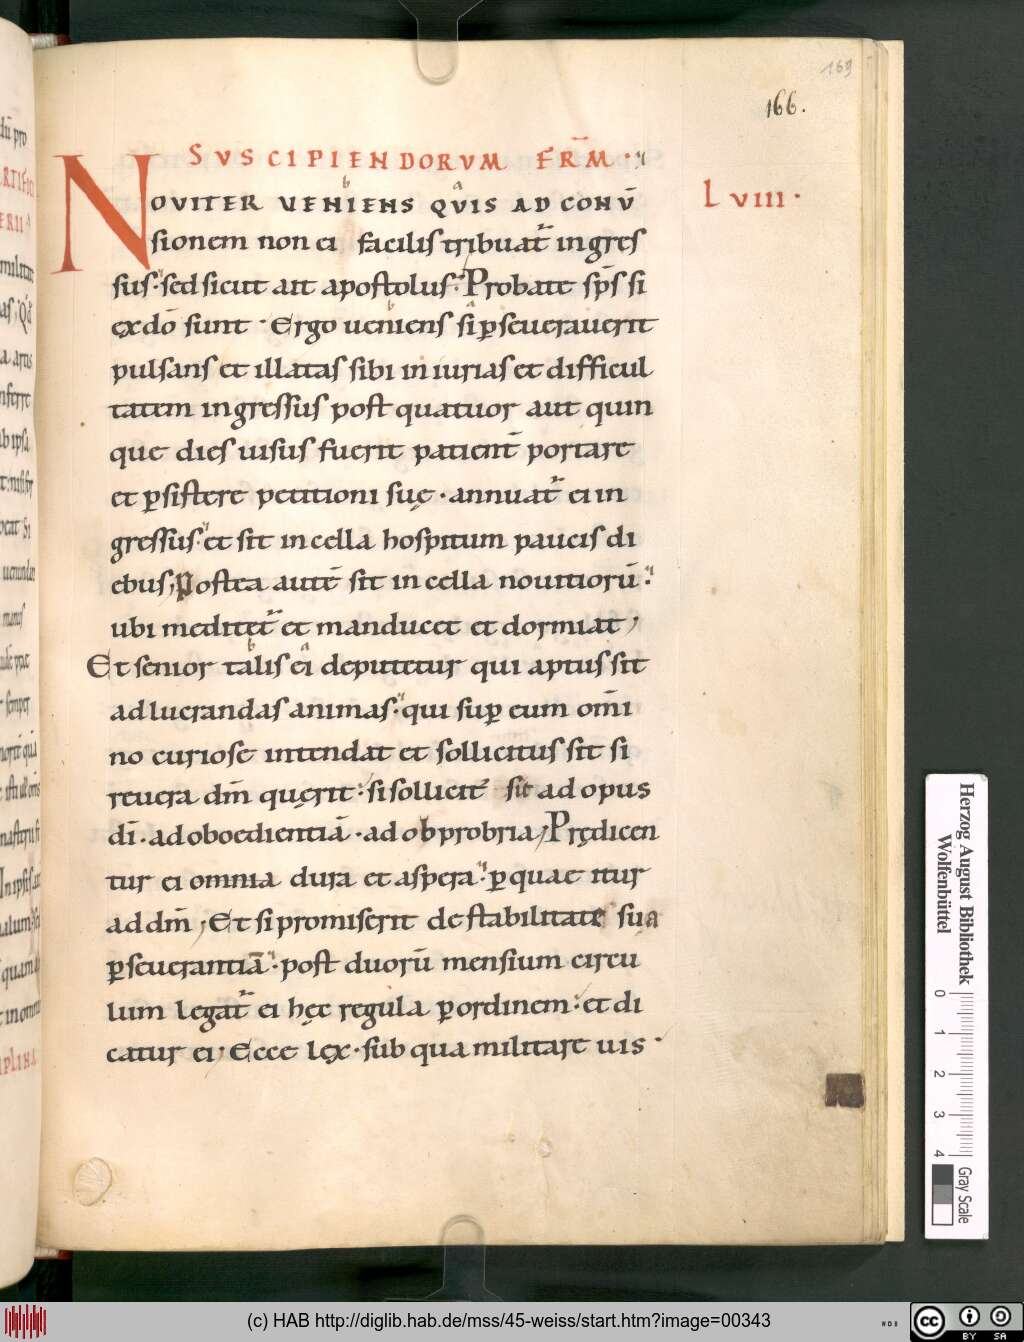 169
166.
SVSCIPIENDORVM FRM̅
LVIII·
NOVITER VENIENS QVIS AD CONV̅
sionem non ei facilis tribuat̅ ingres
sus· sed sicut ait apostolus· Probate sp̅s si
ex do̅ sunt· Ergo ueniens si p̱seuerauerit
pulsans et illatas sibi iniurias et difficul
tatem ingressus post quatuor aut quin
que dies uisus fuerit patient̅ portare
et p̱sistere petitioni suę· annuat̅ ei in
gressus· et sit in cella hospitum paucis di
ebus; Postea aute̅ sit in cella nouitioru̅·
ubi meditet̅ et manducet et dormiat;
Et senior talis ei deputetur qui aptus sit
ad lucrandas animas· qui sup̱ eum om̅i
no curiose intendat et sollicitus sit si
reuera dm̅ quęrit· si sollicit᾽ sit ad opus
di̅· ad oboedientia̅· ad obprobria; Prędicen
tur ei omnia dura et aspera· p̱ quae itur
ad dm̅; Et si promiserit de stabilitate sua
p̱seuerantia̅· post duoru̅ mensium circu
lum legat̅ ei hęc regula p̱ ordinem· et di
catur ei; Ecce lęx· sub qua militare uis·
Herzog August Bibliothek
Wolfenbüttel
0 1 2 3 4
Gray Scale
(c) HAB http://diglib.hab.de/mss/45-weiss/start.htm?image=00343
WDB
cc BY SA